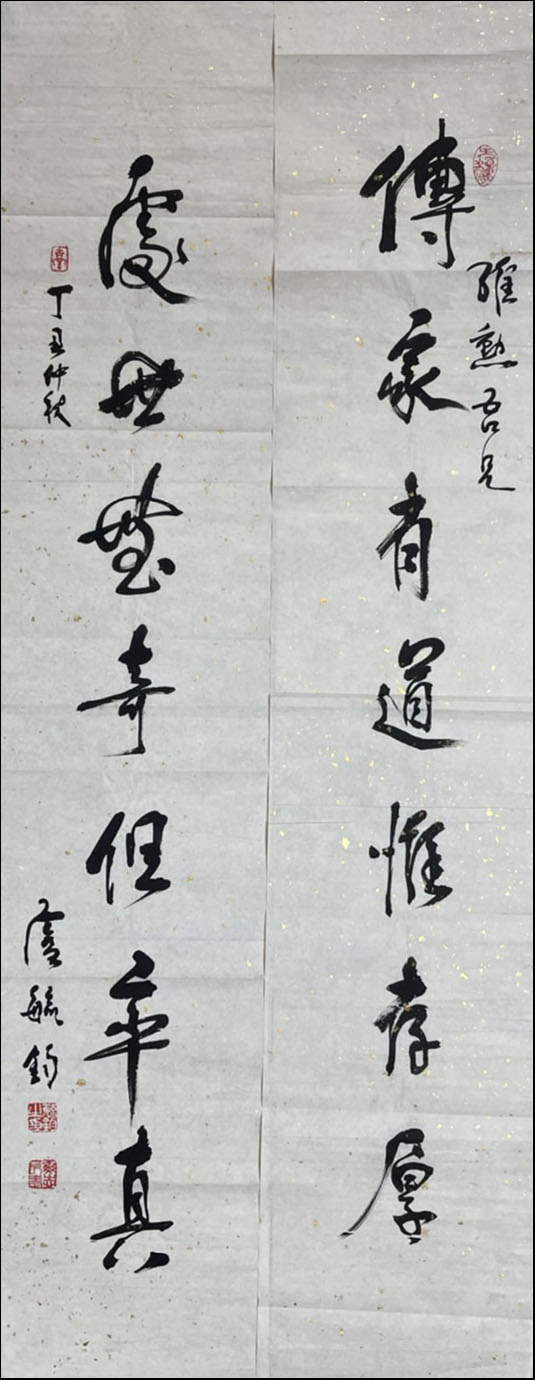 傳家有道惟存厚
維勲吾兄
處世無奇但率真
丁丑仲秋
毓鈞